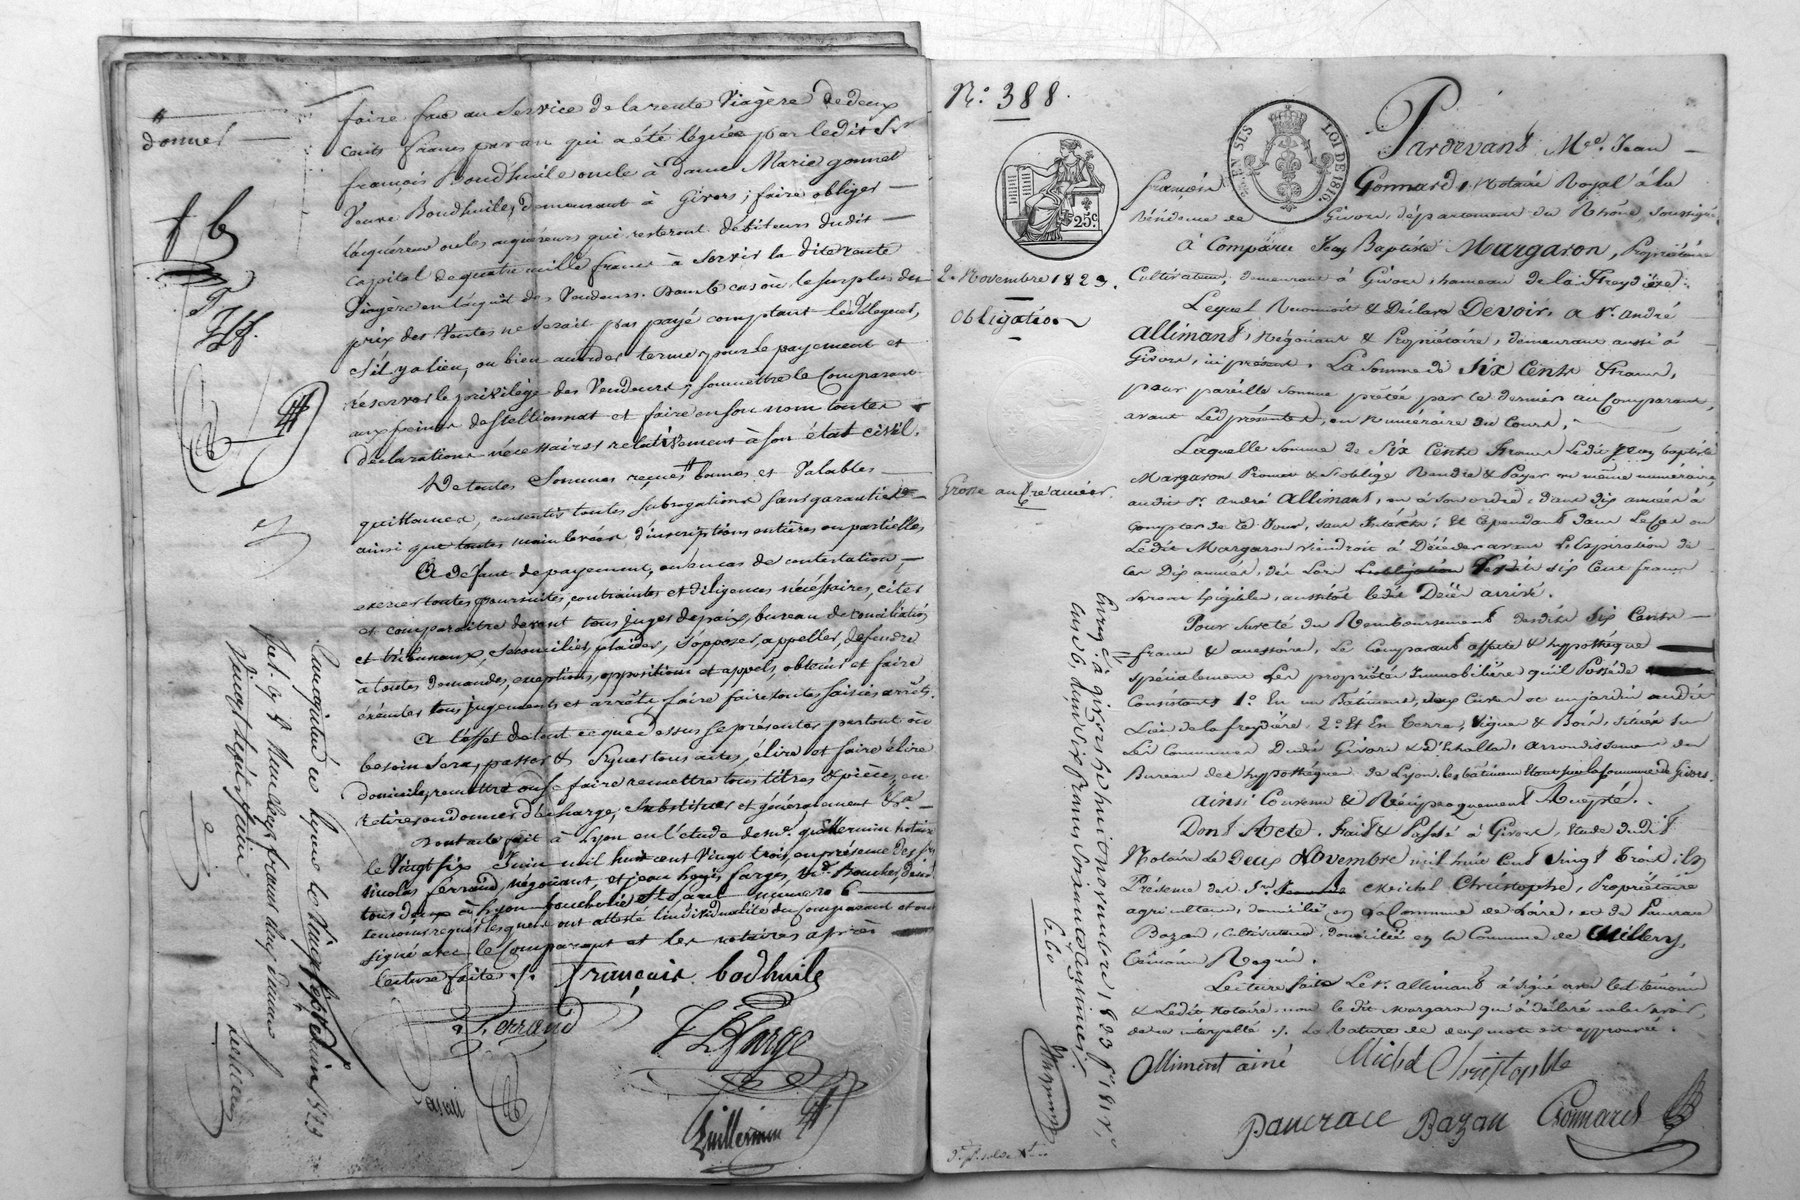 donner
faire face au service de la rente Viagère de deux
cents francs par an qui a été léguée par ledit Sr
françois Boudhuile oncle à dame Marie gonnet
Veuve Boudhuile, demeurant à Givors; faire obliger
l'acquéreur ou les acquéreurs qui resteront débiteurs dudit
capital de quatre mille francs à servir la dite rente
Viagère en l'acquit des Vendeurs. Dans le cas où le surplus du
prix des Ventes ne serait pas payé comptant le déléguer,
s'il y a lieu, ou bien accorder termes pour le payement et
réserver le privilège des Vendeurs; soumettre le Comparant
aux peines de Stellionnat et faire en son nom toutes
déclarations nécessaires relativement à son état civil.
De toutes Sommes reçues bonnes et Valables
quittances, consentir toutes subrogations sans garantie
ainsi que toutes mainlevées d'inscriptions entières ou partielles
A défaut de payement, ou en cas de contestation,
exercer toutes poursuites, contraintes et diligences nécessaires, citer
et comparaître devant tous juges de paix, bureau de conciliation
et tribunaux, se concilier, plaider, s'opposer, appeller, defendre
à toutes demandes, exceptions, oppositions et appels, obtenir et faire
exécuter tous jugements et arrêts, faire faire toutes saisies arrêts.
A l'effet de tout ce que dessus se présenter partout où
besoin sera, passer & signer tous actes, élire et faire élire
domicile, remettre ou se faire remettre tous titres & pièces, en
retirer ou donner décharge, substituer et généralement &a
Dont acte fait à Lyon en l'étude de me. guillermin notaire
le Vingt six Juin mil huit cent Vingt trois, en présence des srs
nicolas ferrand, négociant, et jean louis farges, md. Boucher,
tous deux à Lyon, boucherie St Paul numéro 6
témoins requis lesquels ont attesté l'individualité du Comparant et ont
signé avec le Comparant et les notaires après
lecture faite ./.
françois bodhuile
N. Ferrand
J L Farge
Guillermin
Enregistré à Lyon le Vingt sept Juin 1823
N.º 388.
EN SUS
LOI DE 1816
25.c
2. Novembre 1823.
Obligation
Grosse au Créancier.
Pardevant Mtre. Jean
françois Gonnard, Notaire Royal à la
Résidence de Givors, département du Rhône, soussigné
à Comparu Jean Baptiste Margaron, Propriétaire
Cultivateur, demeurant à Givors, hameau de la Freydière:
Lequel Reconnoit & Déclare Devoir, a Sr. andré
Allimant, Négociant & Propriétaire, demeurant aussi à
Givors, ici présent, La Somme de Six Cents francs,
pour pareille somme prêtée par ce dernier au Comparant,
avant les présentes, en Numéraire du Cours,
Laquelle somme de Six Cents francs Ledit Jean baptiste
Margaron Promet & s'oblige Rendre & Payer en même numéraire
audit Sr. andré Allimant, ou à son ordre, dans dix années à
compter de ce Jour, sans Intérêts; Et Cependant dans Le Cas ou
Ledit Margaron viendroit à Décéder avant L'expiration de
ces Dix années, dès Lors les dits six Cent francs
seront exigibles, aussitôt ledit Décès arrivé.
Pour Sureté du Remboursement desdits Six Cents
francs & accessoires, Le Comparant affecte & hypothèque
spécialement Les propriétés Immobilières qu'il Possède
Consistant 1º. En un Bâtiment, deux Cours et un jardin audit
Lieu de la freydière, 2º. Et En Terre, Vigne & Bois, situés sur
Les Communes Dudit Givors & d'Echallas, arrondissement du
Bureau des hypothèques de Lyon, les bâtiments étant sur la Commune de Givors.
ainsi Convenu & Réciproquement Accepté.
Dont Acte. Fait & Passé à Givors, Etude dudit
Notaire le Deux Novembre mil huit Cent Vingt trois, En
Présence des Srs. Michel Christophe, Propriétaire
agriculteur, domicilié en La Commune de Loire, et de Pancrace
Bazan, Cultivateur, domicilié en la Commune de Millery,
témoins Requis.
Lecture faite Le Sr. allimant à signé avec les témoins
& Ledit Notaire, non le dit Margaron qui à déclaré ne le savoir,
de ce interpellé ./. La Rature de deux mots est approuvée.
Allimant ainé
Michel Christophle
Pancrace Bazan
Gonnard
Enreg.é à givors le huit novembre 1823